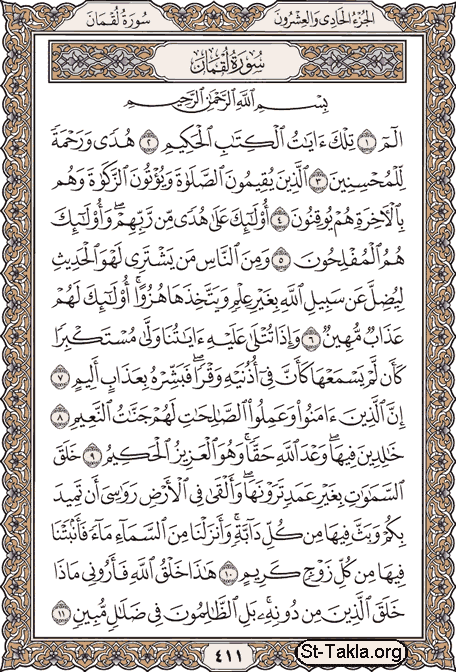 سُورَةُ لُقۡمَانَ الجُزۡءُ الحَادِى وَالعِشۡرُونَ
سُورَةُ لُقۡمَانَ
بِسۡمِ ٱللَّهِ ٱلرَّحۡمَٰنِ ٱلرَّحِيمِ
الٓمٓ ١ تِلۡكَ ءَايَٰتُ ٱلۡكِتَٰبِ ٱلۡحَكِيمِ ٢ هُدٗى وَرَحۡمَةٗ
لِّلۡمُحۡسِنِينَ ٣ ٱلَّذِينَ يُقِيمُونَ ٱلصَّلَوٰةَ وَيُؤۡتُونَ ٱلزَّكَوٰةَ وَهُم
بِٱلۡأٓخِرَةِ هُمۡ يُوقِنُونَ ٤ أُوْلَٰٓئِكَ عَلَىٰ هُدٗى مِّن رَّبِّهِمۡۖ وَأُوْلَٰٓئِكَ
هُمُ ٱلۡمُفۡلِحُونَ ٥ وَمِنَ ٱلنَّاسِ مَن يَشۡتَرِي لَهۡوَ ٱلۡحَدِيثِ
لِيُضِلَّ عَن سَبِيلِ ٱللَّهِ بِغَيۡرِ عِلۡمٖ وَيَتَّخِذَهَا هُزُوًاۚ أُوْلَٰٓئِكَ لَهُمۡ
عَذَابٞ مُّهِينٞ ٦ وَإِذَا تُتۡلَىٰ عَلَيۡهِ ءَايَٰتُنَا وَلَّىٰ مُسۡتَكۡبِرٗا
كَأَن لَّمۡ يَسۡمَعۡهَا كَأَنَّ فِيٓ أُذُنَيۡهِ وَقۡرٗاۖ فَبَشِّرۡهُ بِعَذَابٍ أَلِيمٍ ٧
إِنَّ ٱلَّذِينَ ءَامَنُواْ وَعَمِلُواْ ٱلصَّٰلِحَٰتِ لَهُمۡ جَنَّٰتُ ٱلنَّعِيمِ ٨
خَٰلِدِينَ فِيهَاۖ وَعۡدَ ٱللَّهِ حَقّٗاۚ وَهُوَ ٱلۡعَزِيزُ ٱلۡحَكِيمُ ٩ خَلَقَ
ٱلسَّمَٰوَٰتِ بِغَيۡرِ عَمَدٖ تَرَوۡنَهَاۖ وَأَلۡقَىٰ فِي ٱلۡأَرۡضِ رَوَٰسِيَ أَن تَمِيدَ
بِكُمۡ وَبَثَّ فِيهَا مِن كُلِّ دَآبَّةٖۚ وَأَنزَلۡنَا مِنَ ٱلسَّمَآءِ مَآءٗ فَأَنۢبَتۡنَا
فِيهَا مِن كُلِّ زَوۡجٖ كَرِيمٍ ١٠ هَٰذَا خَلۡقُ ٱللَّهِ فَأَرُونِي مَاذَا
خَلَقَ ٱلَّذِينَ مِن دُونِهِۦۚ بَلِ ٱلظَّٰلِمُونَ فِي ضَلَٰلٖ مُّبِينٖ ١١
٤١١
St-Takla.org